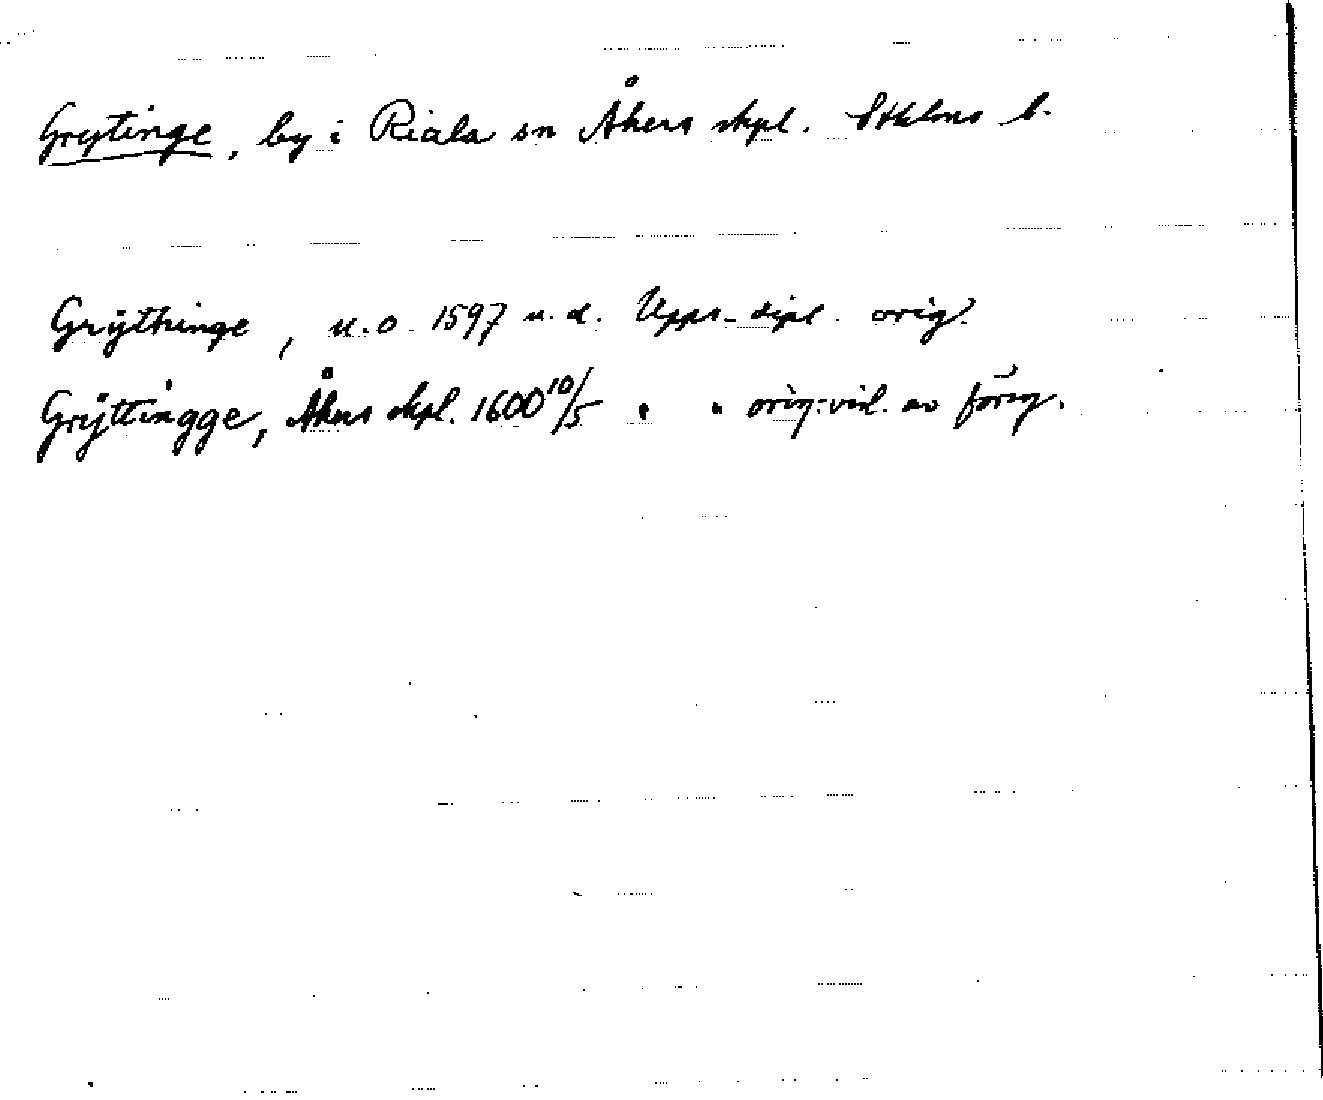 Grytinge, by i Riala sn Åkers skpl. Sthlms l.
Grÿthinge, u.o. 1597 u.d. Upps-dipl. orig.
Grÿttingge, Åkers skpl. 1600 10/5 " " orig:vid. av förg.